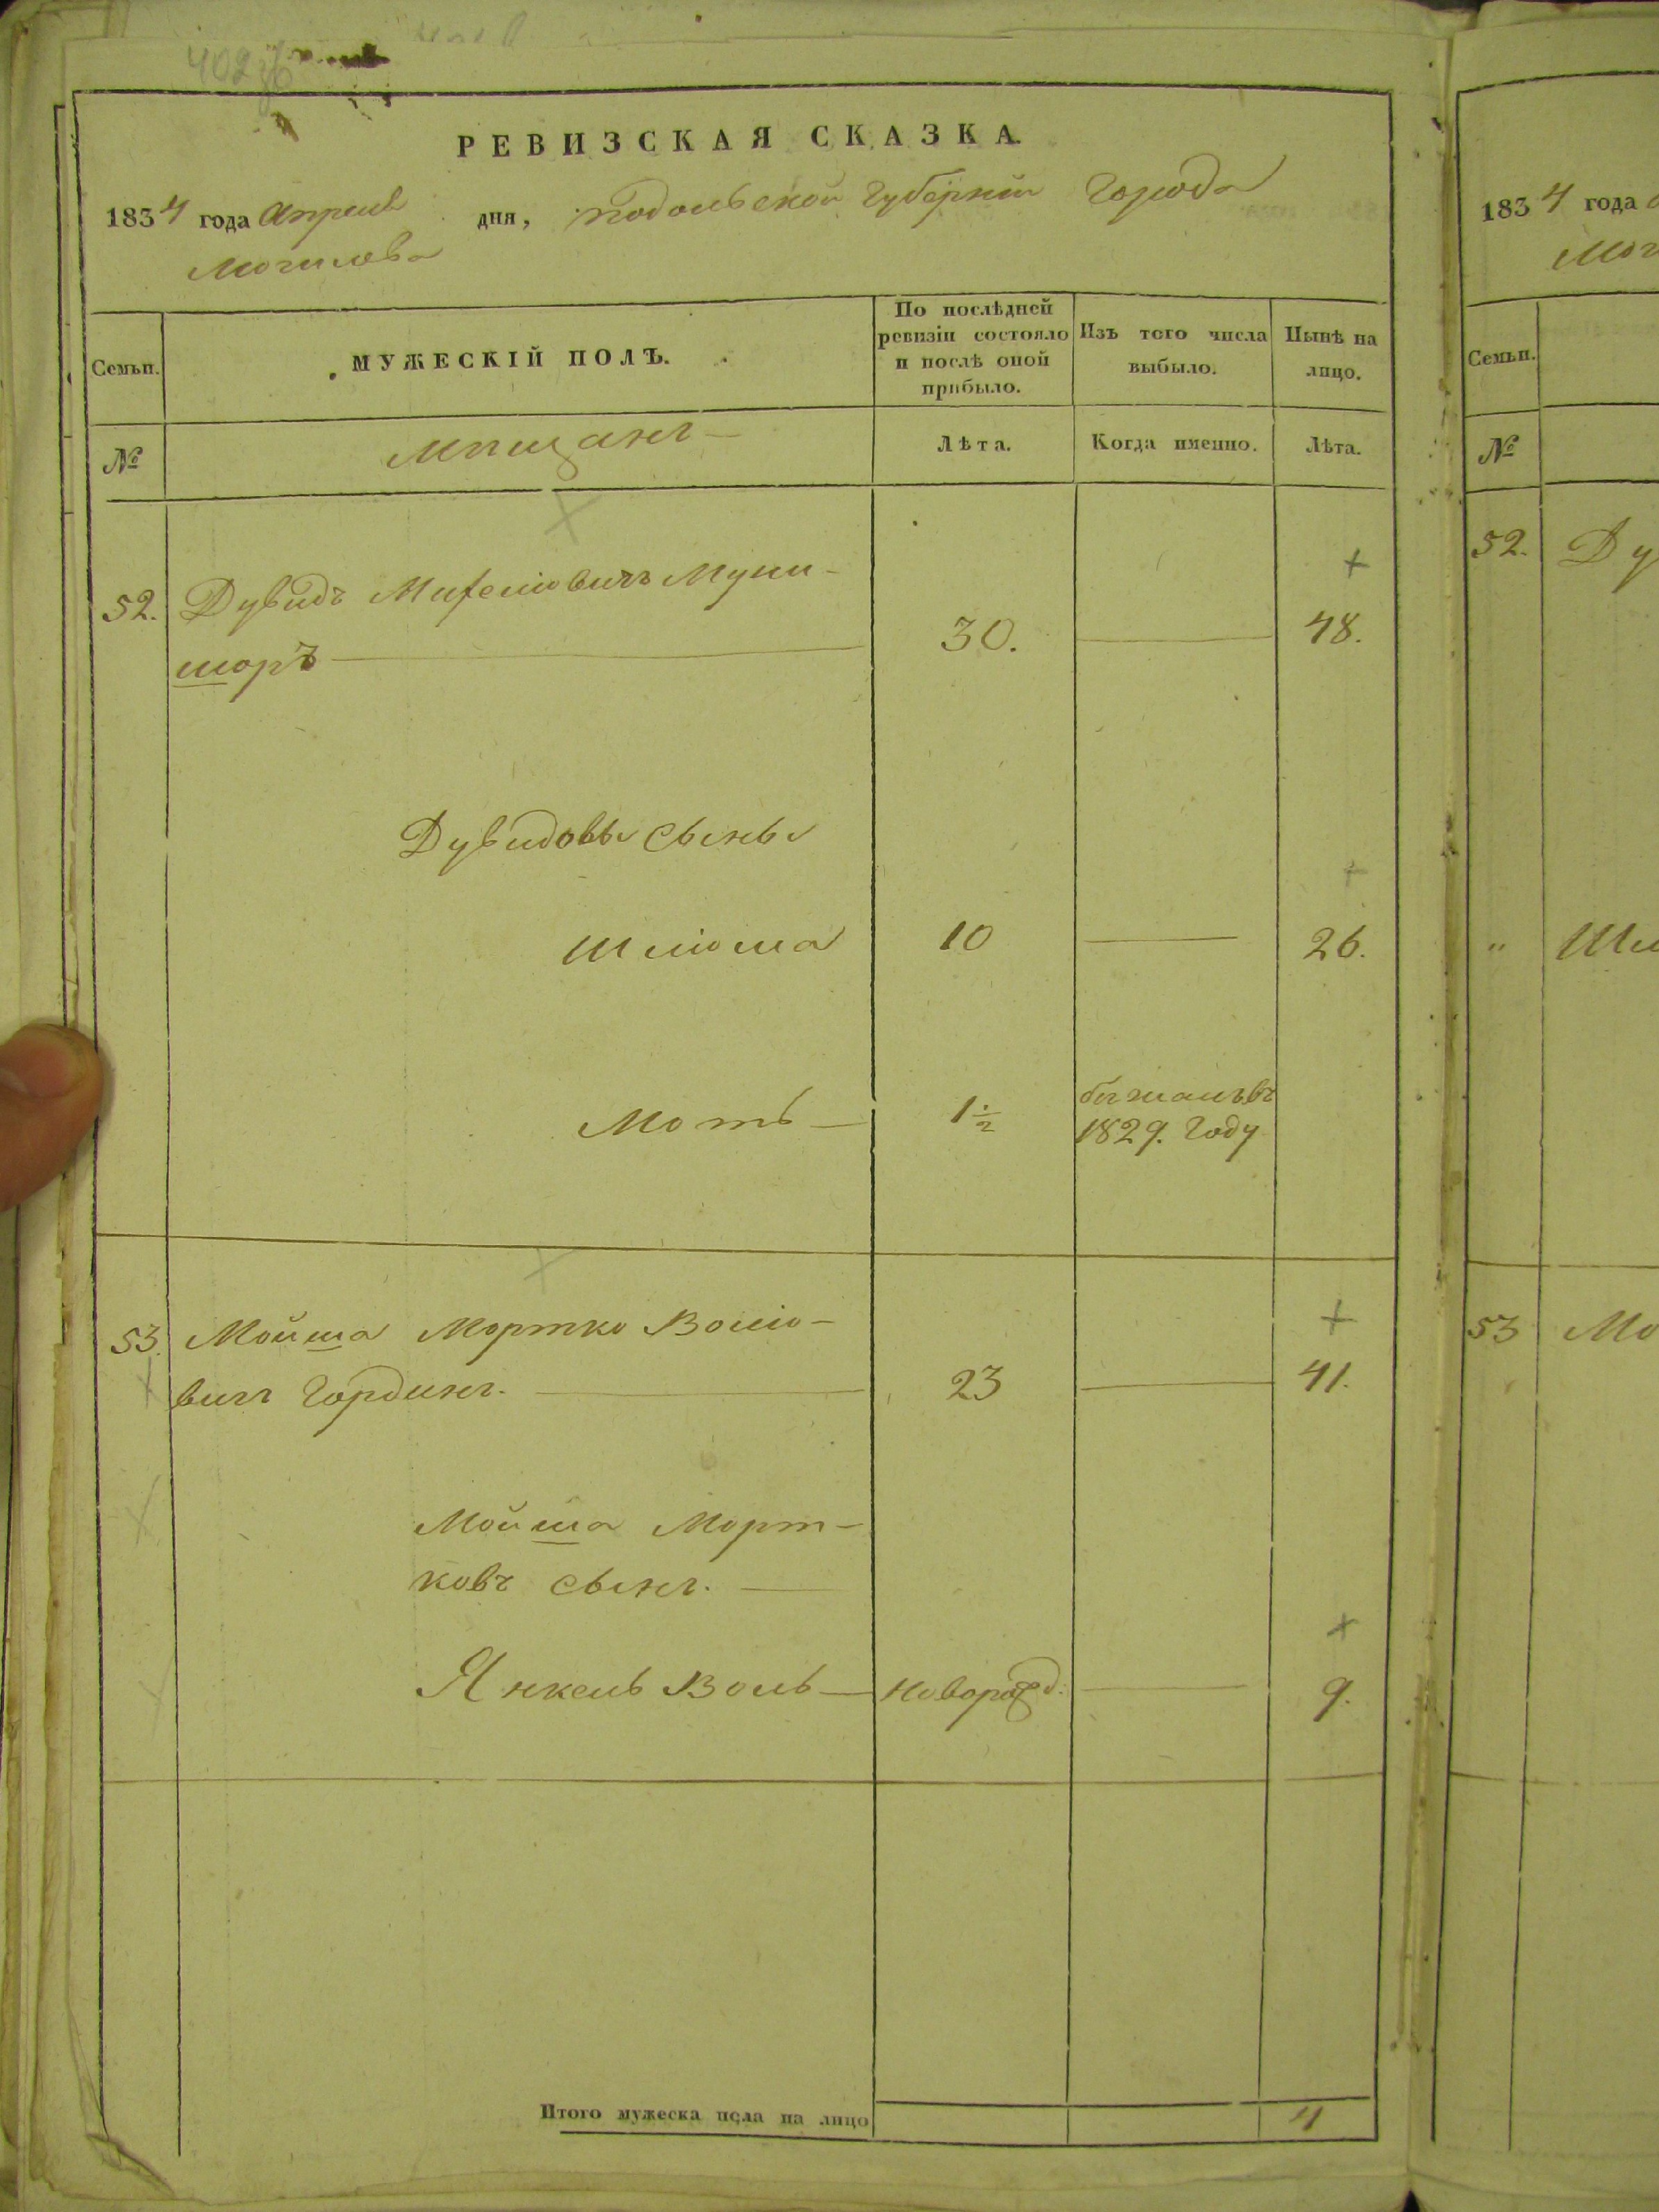 402
РЕВИЗСКАЯ СКАЗКА.
1834 года Апреля дня, Подольской Губерніи Города
Могилева
Семьи.
МУЖЕСКІЙ ПОЛЪ.
По послѣдней
ревизіи состояло
и послѣ оной
прибыло.
Изъ того числа
выбыло.
Нынѣ на
лицо.
№
Мѣщанъ
Лѣта.
Когда именно.
Лѣта.
52. Дувидъ Муни-
шоръ 30. 48.
Дувидовы сыны
Шлiома 10 26.
Моть 1½ бѣжалъ въ
1829. Году
53. Мойша Мортко Волiо-
вичъ Гординъ. 23 41.
Мойша Морт-
ковъ сынъ.
Янкель Воль Новорожд: 9.
Итого мужеска пола на лицо 4
1834 года
Семьи.
№
52. Ду
" Шл
53 Мо